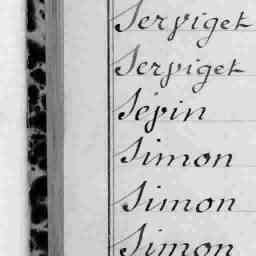 Serviget
Serviget
Sépin
Simon
Simon
Simon